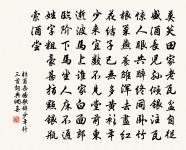 莫笑田家老瓦盆自從
盛酒長兒孫傾銀注瓦
驚人眼共醉終同臥竹
根巢燕養雛渾去盡江
花結子已無多黃衫年
少來宜數不見堂前東
逝波馬上誰家白面郎
臨階下馬坐人床不通
姓字粗豪甚指點銀瓶
索酒嘗
杜甫少年行
三首